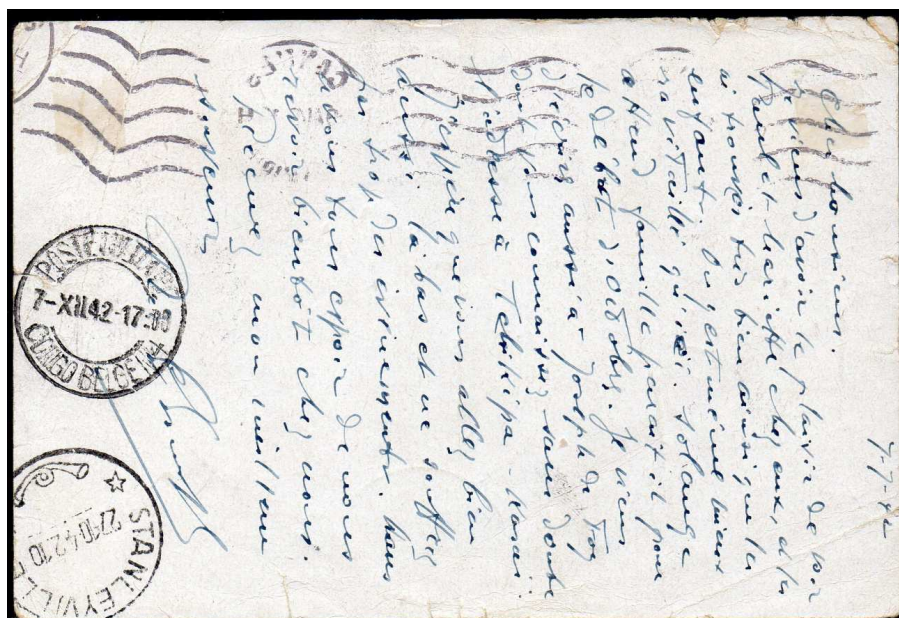 7-7-42
Cher Monsieur.
Je viens d'avoir le plaisir de voir
Paul et Mariette chez eux, de les
ai trouvés très bien ainsi que les
enfants. On y est même mieux
ravitaillé qu'ici. Solange
attend famille paraît-il pour
le début d'Octobre. Je viens
d'écrire aussi à Joseph de
dont vous connaissez sans doute
l'adresse à Tshikapa - Kasai
J'espère que vous allez bien
aussi là-bas et ne souffrez
pas trop des événements. Nous
avons tous espoir de vous
revoir bientôt chez nous.
Recevez mon meilleur
souvenir
POSTE MILITAIRE
7-XII 42-17:00
CONGO BELGE N° 4
STANLEYVILLE
27.10.42.10